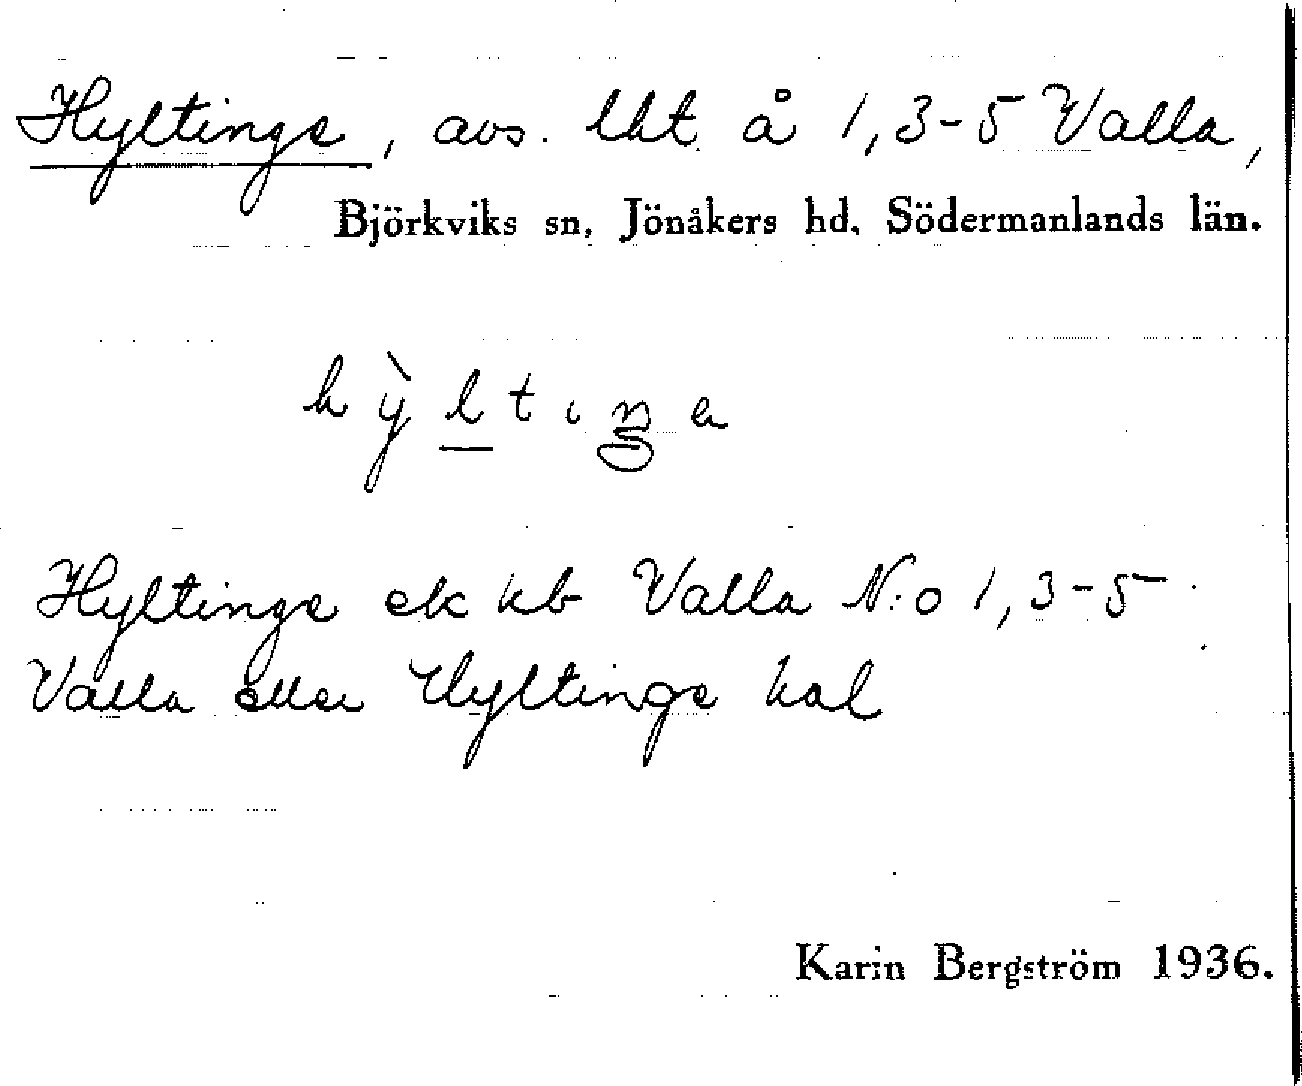 Hyltinge, avs. lht å 1, 3-5 Valla,
Björkviks sn, Jönåkers hd, Södermanlands län.
hy̏ltiŋa
Hyltinge ek kb Valla N:o 1, 3-5
Valla eller Hyltinge hal
Karin Bergström 1936.